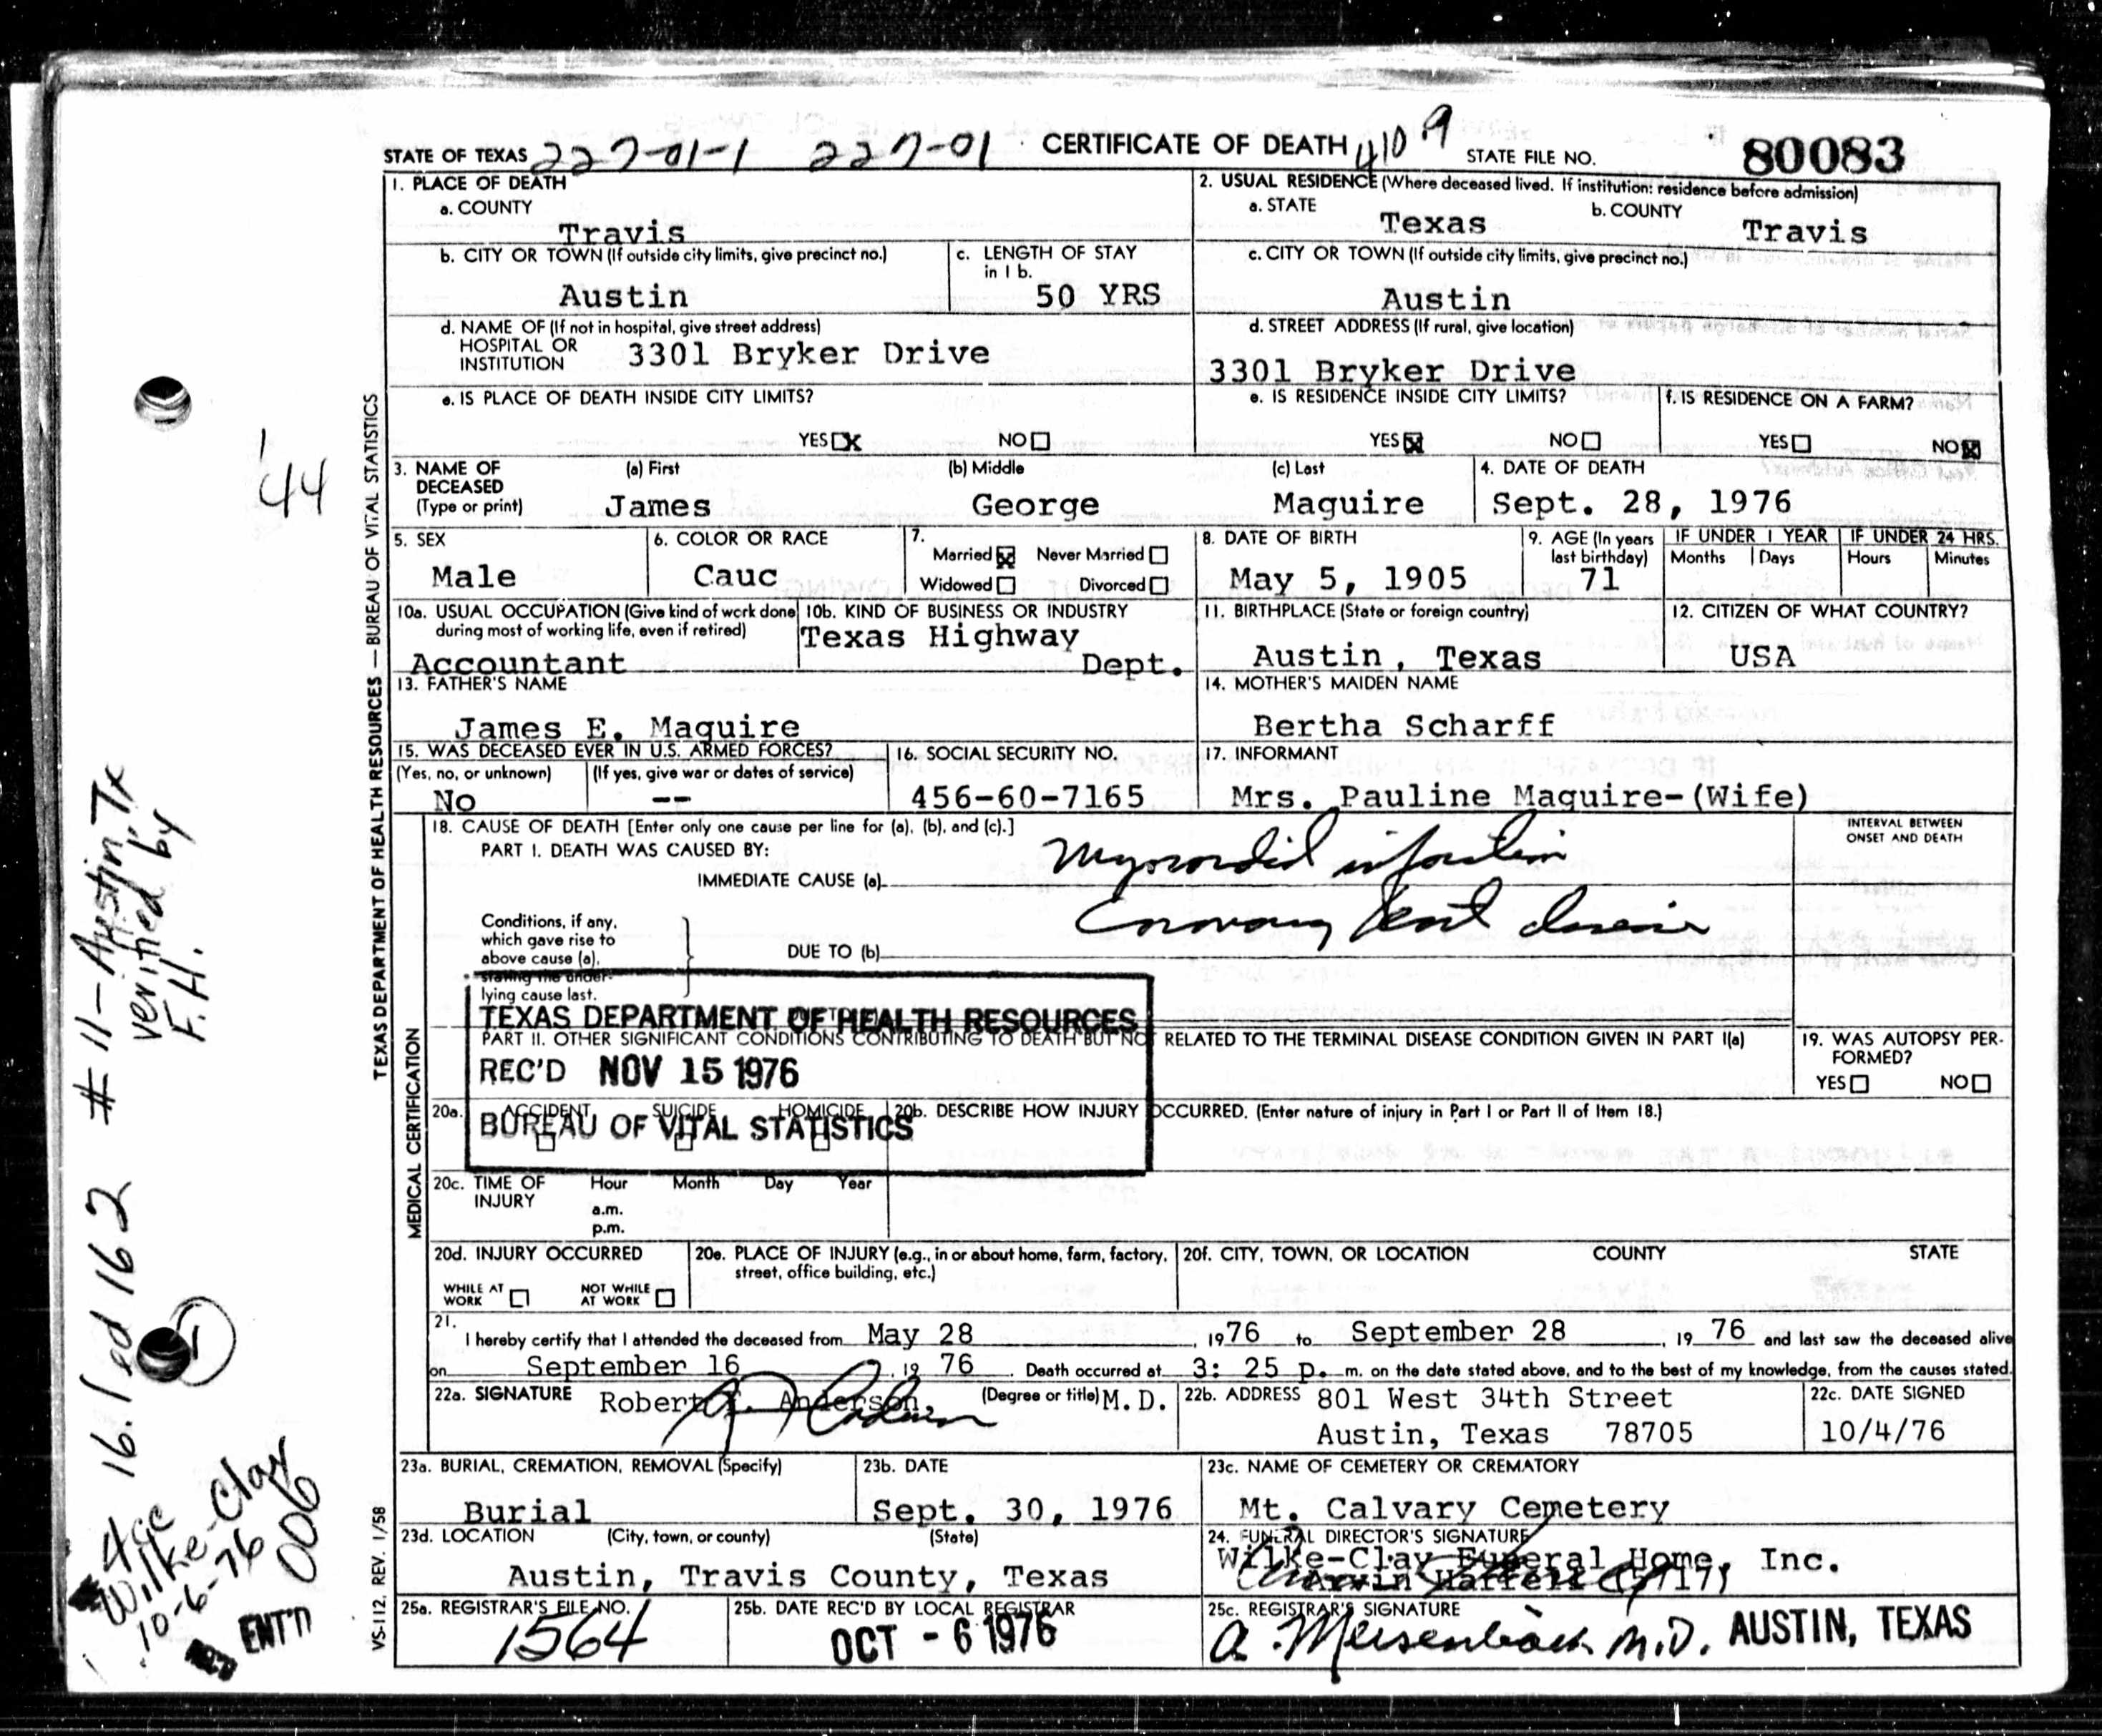 STATE OF TEXAS 227-01-1 227-01 CERTIFICATE OF DEATH 410.9 STATE FILE NO. 80083
1. PLACE OF DEATH
a. COUNTY
Travis
2. USUAL RESIDENCE (Where deceased lived. If institution: residence before admission)
a. STATE Texas b. COUNTY Travis
b. CITY OR TOWN (If outside city limits, give precinct no.)
Austin
c. LENGTH OF STAY
in 1 b.
50 YRS
c. CITY OR TOWN (If outside city limits, give precinct no.)
Austin
d. NAME OF (If not in hospital, give street address)
HOSPITAL OR
INSTITUTION 3301 Bryker Drive
d. STREET ADDRESS (If rural, give location)
3301 Bryker Drive
e. IS PLACE OF DEATH INSIDE CITY LIMITS?
YES X NO
e. IS RESIDENCE INSIDE CITY LIMITS?
YES X NO
f. IS RESIDENCE ON A FARM?
YES NO X
3. NAME OF
DECEASED
(Type or print)
(a) First (b) Middle (c) Last
James George Maguire
4. DATE OF DEATH
Sept. 28, 1976
5. SEX
Male
6. COLOR OR RACE
Cauc
7.
Married X Never Married
Widowed Divorced
8. DATE OF BIRTH
May 5, 1905
9. AGE (In years
last birthday)
71
IF UNDER 1 YEAR
Months Days
IF UNDER 24 HRS.
Hours Minutes
10a. USUAL OCCUPATION (Give kind of work done
during most of working life, even if retired)
Accountant
10b. KIND OF BUSINESS OR INDUSTRY
Texas Highway
Dept.
11. BIRTHPLACE (State or foreign country)
Austin, Texas
12. CITIZEN OF WHAT COUNTRY?
USA
13. FATHER'S NAME
James E. Maguire
14. MOTHER'S MAIDEN NAME
Bertha Scharff
15. WAS DECEASED EVER IN U.S. ARMED FORCES?
(Yes, no, or unknown) (If yes, give war or dates of service)
No --
16. SOCIAL SECURITY NO.
456-60-7165
17. INFORMANT
Mrs. Pauline Maguire-(Wife)
18. CAUSE OF DEATH [Enter only one cause per line for (a), (b), and (c).]
PART I. DEATH WAS CAUSED BY:
IMMEDIATE CAUSE (a) Myocardial infarction
INTERVAL BETWEEN
ONSET AND DEATH
Conditions, if any,
which gave rise to
above cause (a),
stating the under-
lying cause last.
DUE TO (b) Coronary heart disease
TEXAS DEPARTMENT OF HEALTH RESOURCES
REC'D NOV 15 1976
BUREAU OF VITAL STATISTICS
PART II. OTHER SIGNIFICANT CONDITIONS CONTRIBUTING TO DEATH BUT NOT RELATED TO THE TERMINAL DISEASE CONDITION GIVEN IN PART I(a)
19. WAS AUTOPSY PER-
FORMED?
YES NO
20a. ACCIDENT SUICIDE HOMICIDE
20b. DESCRIBE HOW INJURY OCCURRED. (Enter nature of injury in Part I or Part II of Item 18.)
20c. TIME OF
INJURY
Hour Month Day Year
a.m.
p.m.
20d. INJURY OCCURRED
WHILE AT
WORK
NOT WHILE
AT WORK
20e. PLACE OF INJURY (e.g., in or about home, farm, factory,
street, office building, etc.)
20f. CITY, TOWN, OR LOCATION COUNTY STATE
21.
I hereby certify that I attended the deceased from May 28, 1976 to September 28, 19 76 and last saw the deceased alive
on September 16, 19 76. Death occurred at 3: 25 p. m. on the date stated above, and to the best of my knowledge, from the causes stated.
22a. SIGNATURE Robert Anderson, (Degree or title) M.D.
22b. ADDRESS 801 West 34th Street
Austin, Texas 78705
22c. DATE SIGNED
10/4/76
23a. BURIAL, CREMATION, REMOVAL (Specify)
Burial
23b. DATE
Sept. 30, 1976
23c. NAME OF CEMETERY OR CREMATORY
Mt. Calvary Cemetery
23d. LOCATION (City, town, or county) (State)
Austin, Travis County, Texas
24. FUNERAL DIRECTOR'S SIGNATURE
Wilke-Clay Funeral Home, Inc.
25a. REGISTRAR'S FILE NO.
1564
25b. DATE REC'D BY LOCAL REGISTRAR
OCT - 6 1976
25c. REGISTRAR'S SIGNATURE
a. Meisenbach M.D. AUSTIN, TEXAS
TEXAS DEPARTMENT OF HEALTH RESOURCES — BUREAU OF VITAL STATISTICS
MEDICAL CERTIFICATION
VS-112, REV. 1/58
44
# 11-Austin, Tx
verified by
F.H.
Wilke-Clay
10-6-76
006
ENT'D